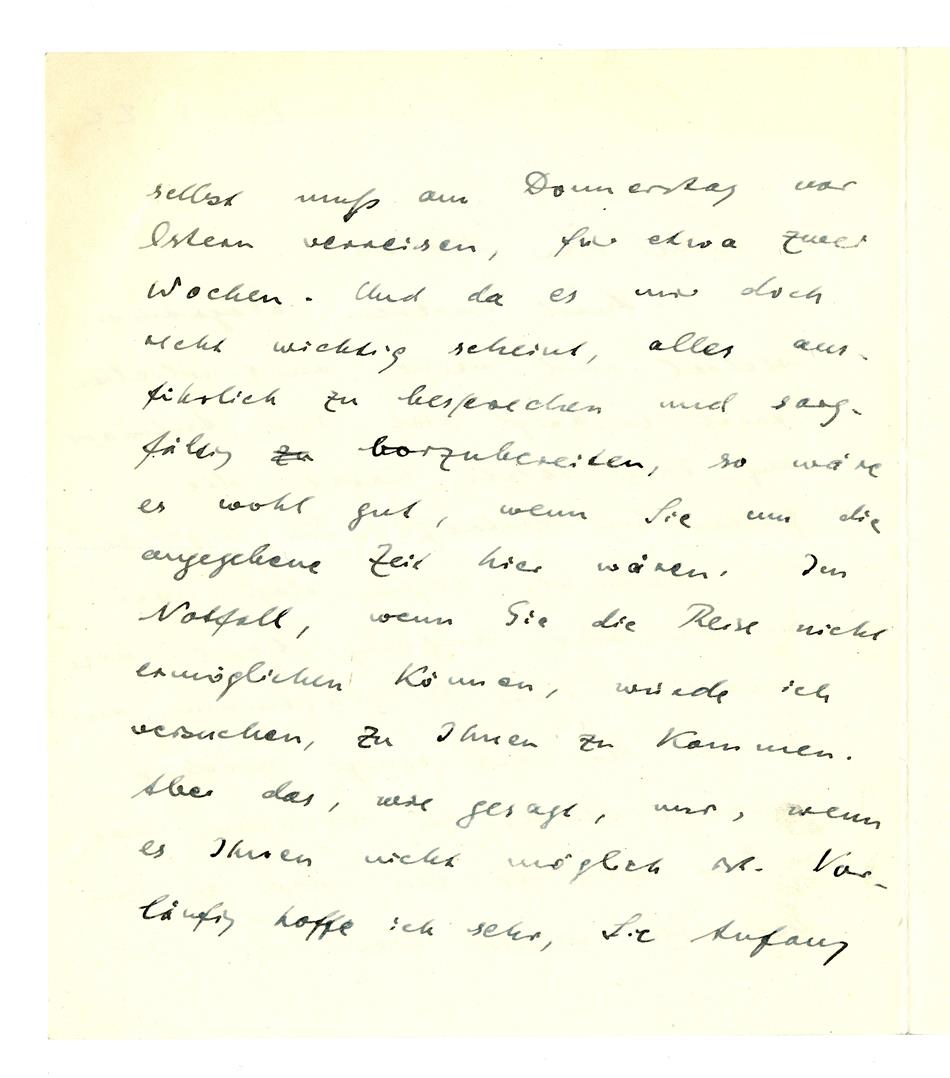 selbst muß am Donnerstag vor
Ostern verreisen, für etwa zwei
Wochen. Und da es mir doch
recht wichtig scheint, alles aus-
führlich zu besprechen und sorg-
fältig zu vorzubereiten, so wäre
es wohl gut, wenn Sie um die
angegebene Zeit hier wären. Im
Notfall, wenn Sie die Reise nicht
ermöglichen können, würde ich
versuchen, zu Ihnen zu kommen.
Aber das, wie gesagt, nur, wenn
es Ihnen nicht möglich ist. Vor-
läufig hoffe ich sehr, Sie Anfang